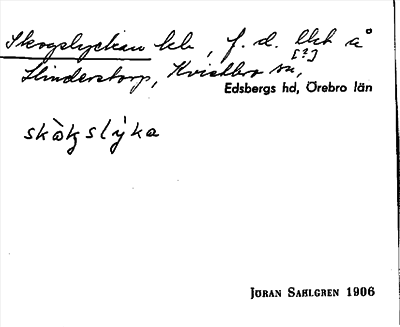 Skogslyckan hl, f. d. lht å
[?]
Hinderstorp, Kvistbro sn,
Edsbergs hd, Örebro län
skòg slỳka
JÖRAN SAHLGREN 1906